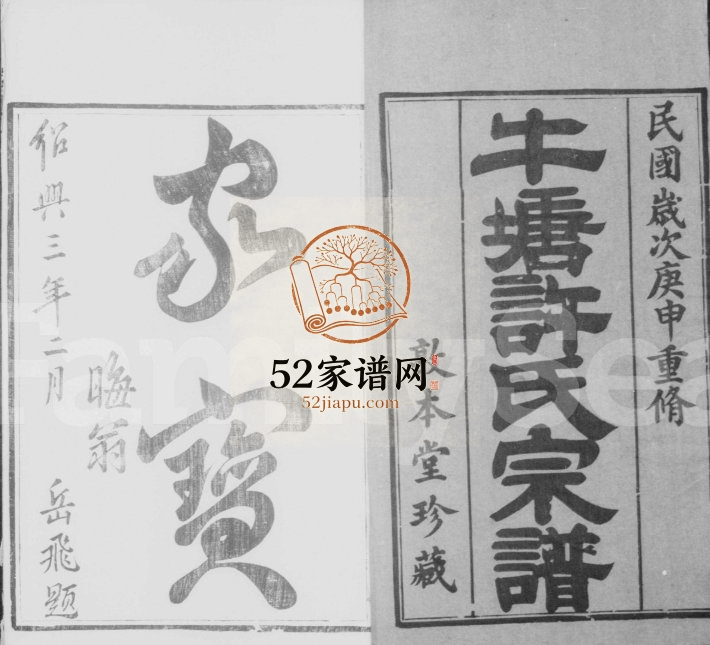 民國歲次庚申重脩
牛塘許氏宗譜
敦本堂珍藏
家寶
晦翁
紹興三年二月
岳飛題
52家谱网
52jiapu.com